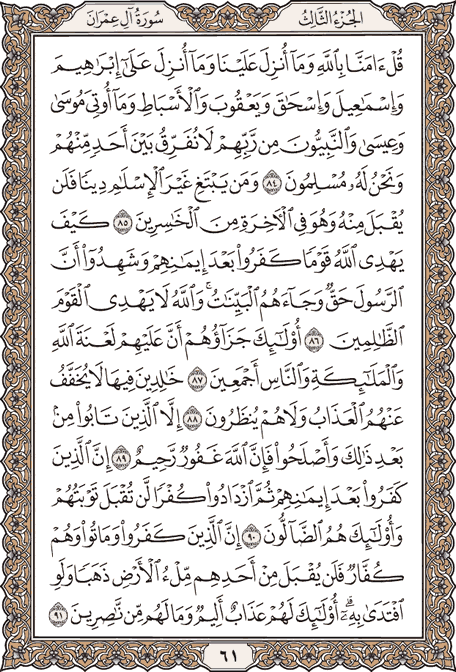 سُورَةُ آلِ عِمْرَانَ
الجُزْءُ الثَّالِثُ
قُلْ ءَامَنَّا بِٱللَّهِ وَمَآ أُنزِلَ عَلَيْنَا وَمَآ أُنزِلَ عَلَىٰٓ إِبْرَٰهِيمَ
وَإِسْمَٰعِيلَ وَإِسْحَٰقَ وَيَعْقُوبَ وَٱلْأَسْبَاطِ وَمَآ أُوتِىَ مُوسَىٰ
وَعِيسَىٰ وَٱلنَّبِيُّونَ مِن رَّبِّهِمْ لَا نُفَرِّقُ بَيْنَ أَحَدٍ مِّنْهُمْ
وَنَحْنُ لَهُۥ مُسْلِمُونَ ٨٤ وَمَن يَبْتَغِ غَيْرَ ٱلْإِسْلَٰمِ دِينًا فَلَن
يُقْبَلَ مِنْهُ وَهُوَ فِى ٱلْءَاخِرَةِ مِنَ ٱلْخَٰسِرِينَ ٨٥ كَيْفَ
يَهْدِى ٱللَّهُ قَوْمًا كَفَرُوا۟ بَعْدَ إِيمَٰنِهِمْ وَشَهِدُوٓا۟ أَنَّ
ٱلرَّسُولَ حَقٌّ وَجَآءَهُمُ ٱلْبَيِّنَٰتُ ۚ وَٱللَّهُ لَا يَهْدِى ٱلْقَوْمَ
ٱلظَّٰلِمِينَ ٨٦ أُو۟لَٰٓئِكَ جَزَآؤُهُمْ أَنَّ عَلَيْهِمْ لَعْنَةَ ٱللَّهِ
وَٱلْمَلَٰٓئِكَةِ وَٱلنَّاسِ أَجْمَعِينَ ٨٧ خَٰلِدِينَ فِيهَا لَا يُخَفَّفُ
عَنْهُمُ ٱلْعَذَابُ وَلَا هُمْ يُنظَرُونَ ٨٨ إِلَّا ٱلَّذِينَ تَابُوا۟ مِنۢ
بَعْدِ ذَٰلِكَ وَأَصْلَحُوا۟ فَإِنَّ ٱللَّهَ غَفُورٌ رَّحِيمٌ ٨٩ إِنَّ ٱلَّذِينَ
كَفَرُوا۟ بَعْدَ إِيمَٰنِهِمْ ثُمَّ ٱزْدَادُوا۟ كُفْرًا لَّن تُقْبَلَ تَوْبَتُهُمْ
وَأُو۟لَٰٓئِكَ هُمُ ٱلضَّآلُّونَ ٩٠ إِنَّ ٱلَّذِينَ كَفَرُوا۟ وَمَاتُوا۟ وَهُمْ
كُفَّارٌ فَلَن يُقْبَلَ مِنْ أَحَدِهِم مِّلْءُ ٱلْأَرْضِ ذَهَبًا وَلَوِ
ٱفْتَدَىٰ بِهِۦٓ ۗ أُو۟لَٰٓئِكَ لَهُمْ عَذَابٌ أَلِيمٌ وَمَا لَهُم مِّن نَّٰصِرِينَ ٩١
٦١